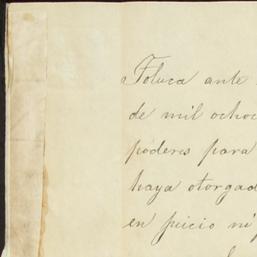 Toluca ante
de mil ochoc
poderes para
haya otorgad
en juicio ni